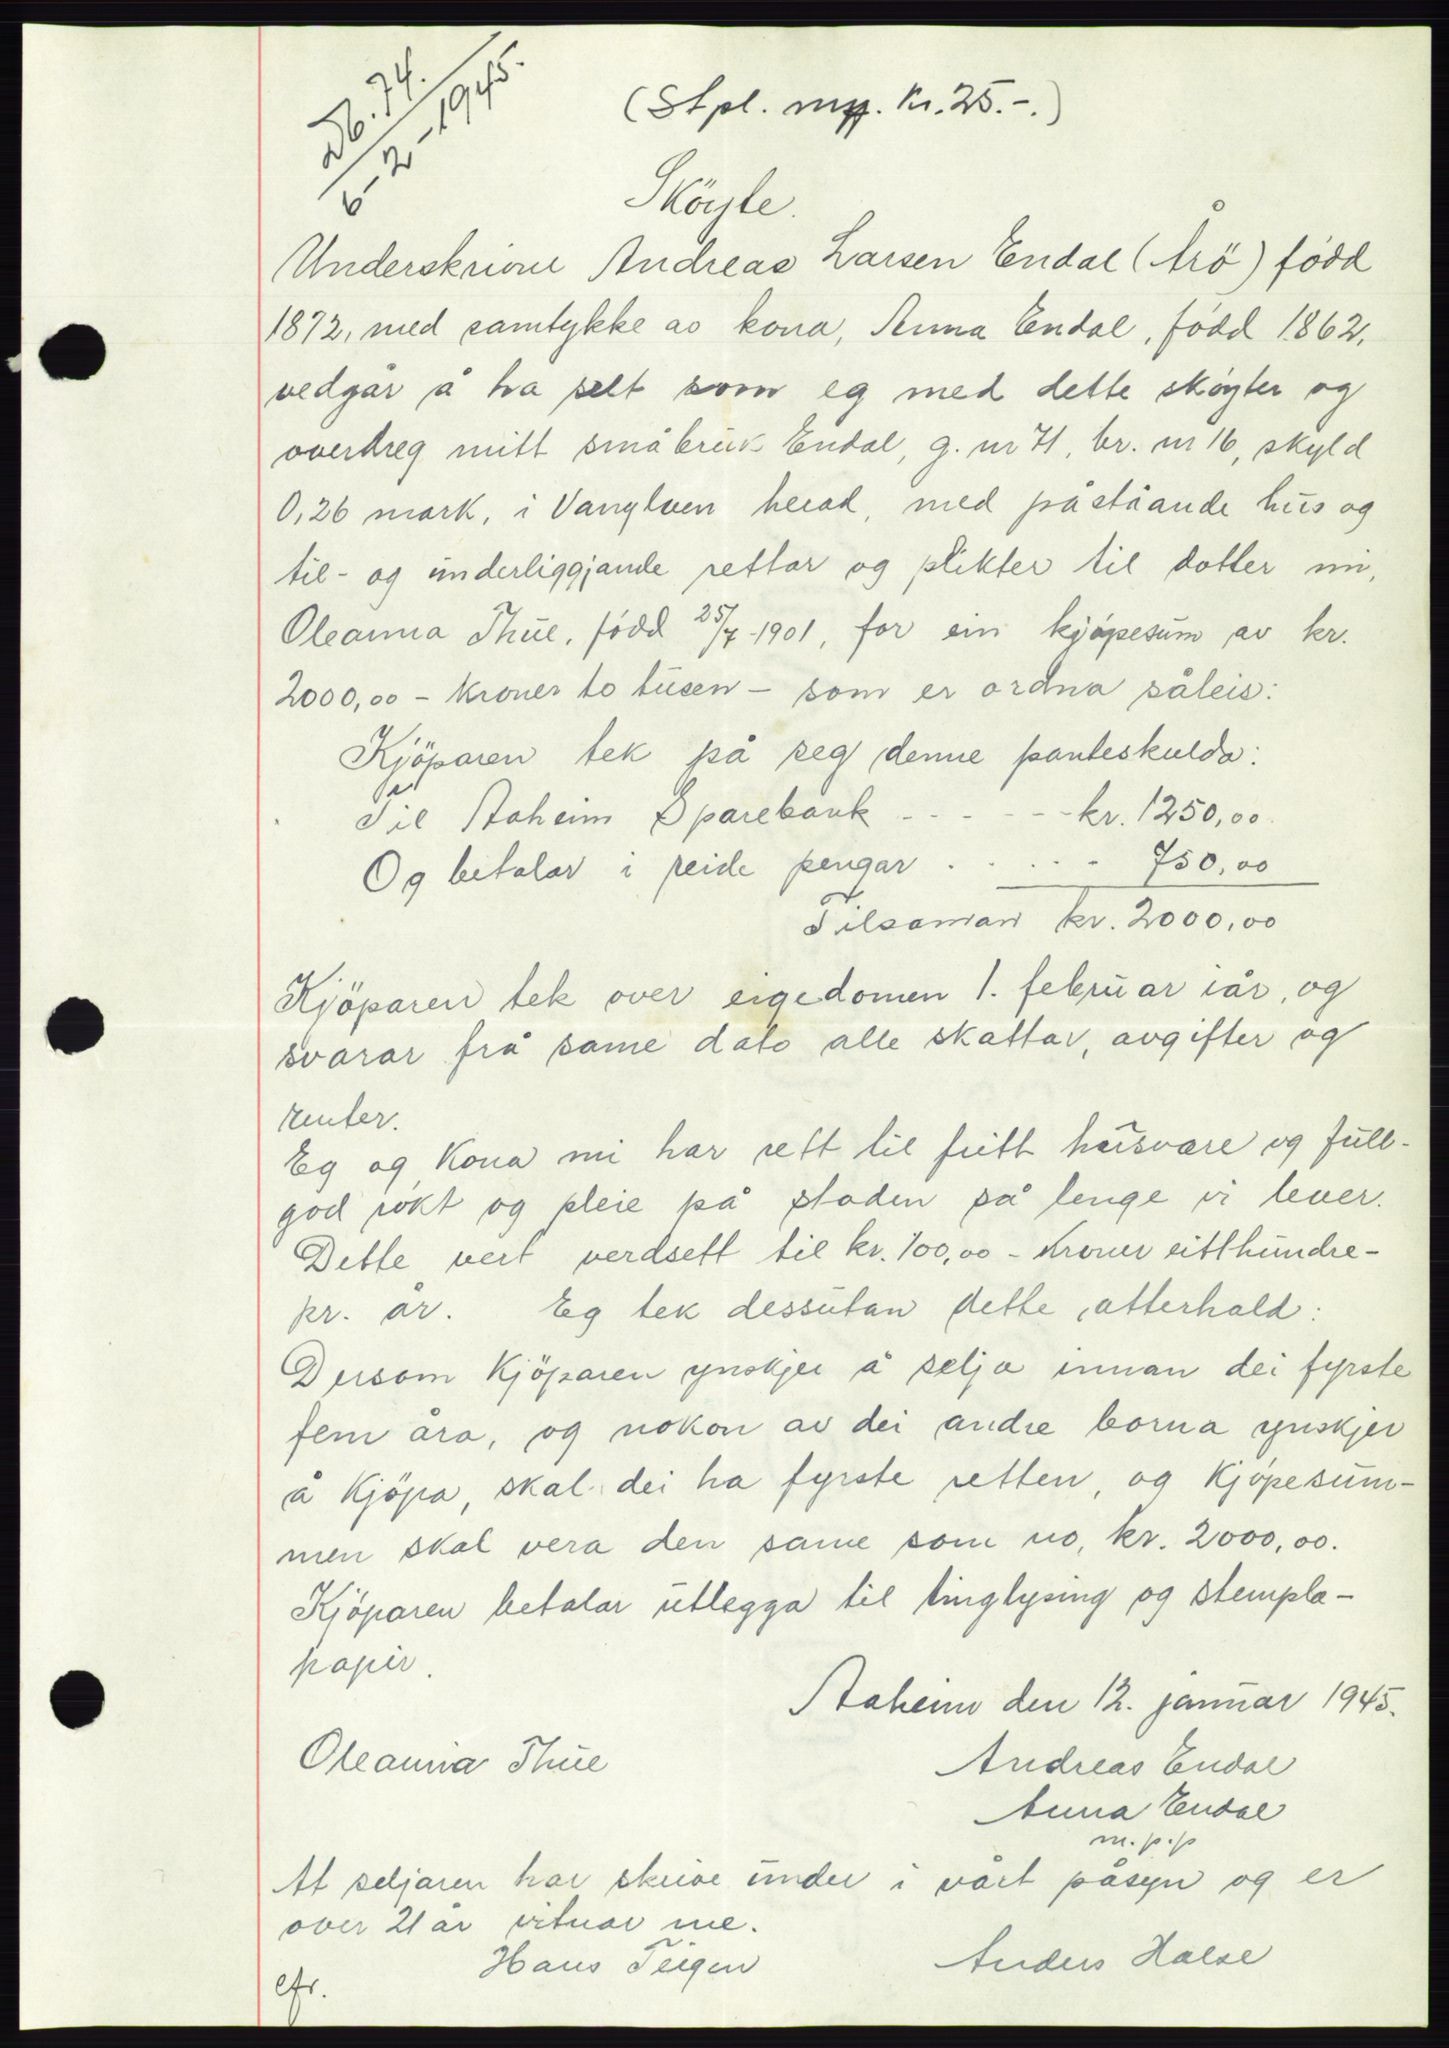 Db. 74.
6-2-1945.
(Stpl. mgf. Kr. 25.-.)
Sköyte.
Underskrivne Andreas Larsen Endal (Årö) född
1872, med samtykke av kona, Anna Endal, född 1862,
vedgår å ha selt som eg med dette sköyter og
overdreg mitt småbruk Endal, g. nr 71, br. nr 16, skyld
0,26 mark, i Vanylven herad, med påståande hus og
til- og underliggjande rettar og plikter til dotter mi,
Oleanna Thue, född 25/7-1901, for ein kjöpesum av kr.
2000,00 - Kroner to tusen - som er ordna såleis:
Kjöparen tek på seg denne panteskulda:
Til Aaheim Sparebank - - - - - - kr. 1250,00.
Og betalar i reide pengar . . . . - 750,00
Tilsaman kr. 2000,00
Kjöparen tek over eigedomen 1. februar iår, og
svarar frå same dato alle skattar, avgifter og
renter.
Eg og Kona mi har rett til fritt husvære og full-
god rökt og pleie på staden så lenge vi lever.
Dette vert verdsett til kr. 100,00 - Kroner eitthundre -
pr. år. Eg tek dessutan dette atterhald:
Dersom Kjöparen ynskjer å selja innan dei fyrste
fem åra, og nokon av dei andre borna ynskjer
å Kjöpa, skal dei ha fyrste retten, og Kjöpesum-
men skal vera den same som no, kr. 2000,00.
Kjöparen betalar utlegga til tinglysing og stempla-
papir.
Aaheim den 12. januar 1945.
Oleanna Thue
Andreas Endal
Anna Endal
m.p.p
At seljaren har skrive under i vårt påsyn og er
over 21 år vitnar me.
Hans Teigen
Anders Halse
efr.